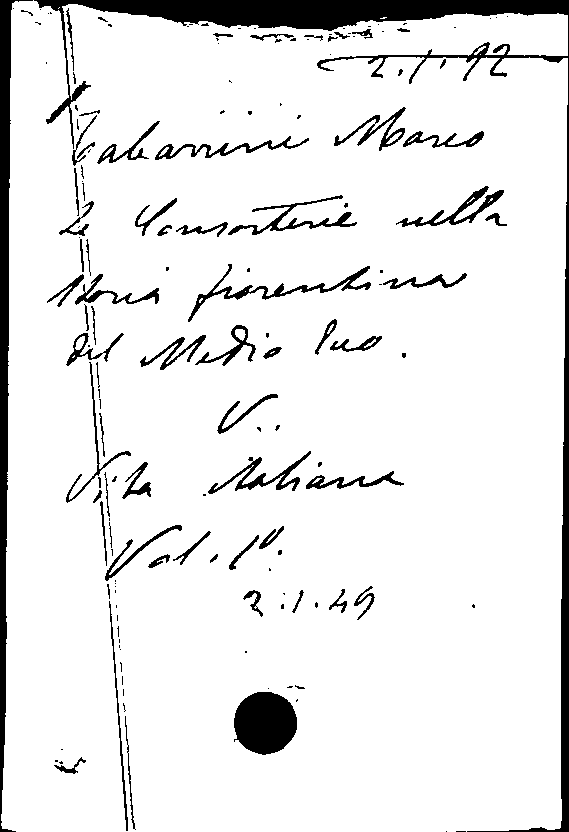 2.1.92
Tabarrini Marco
Le Consorterie nella
storia fiorentina
del Medio Evo.
V..
Vita italiana
Vol. 1º.
2.1.49